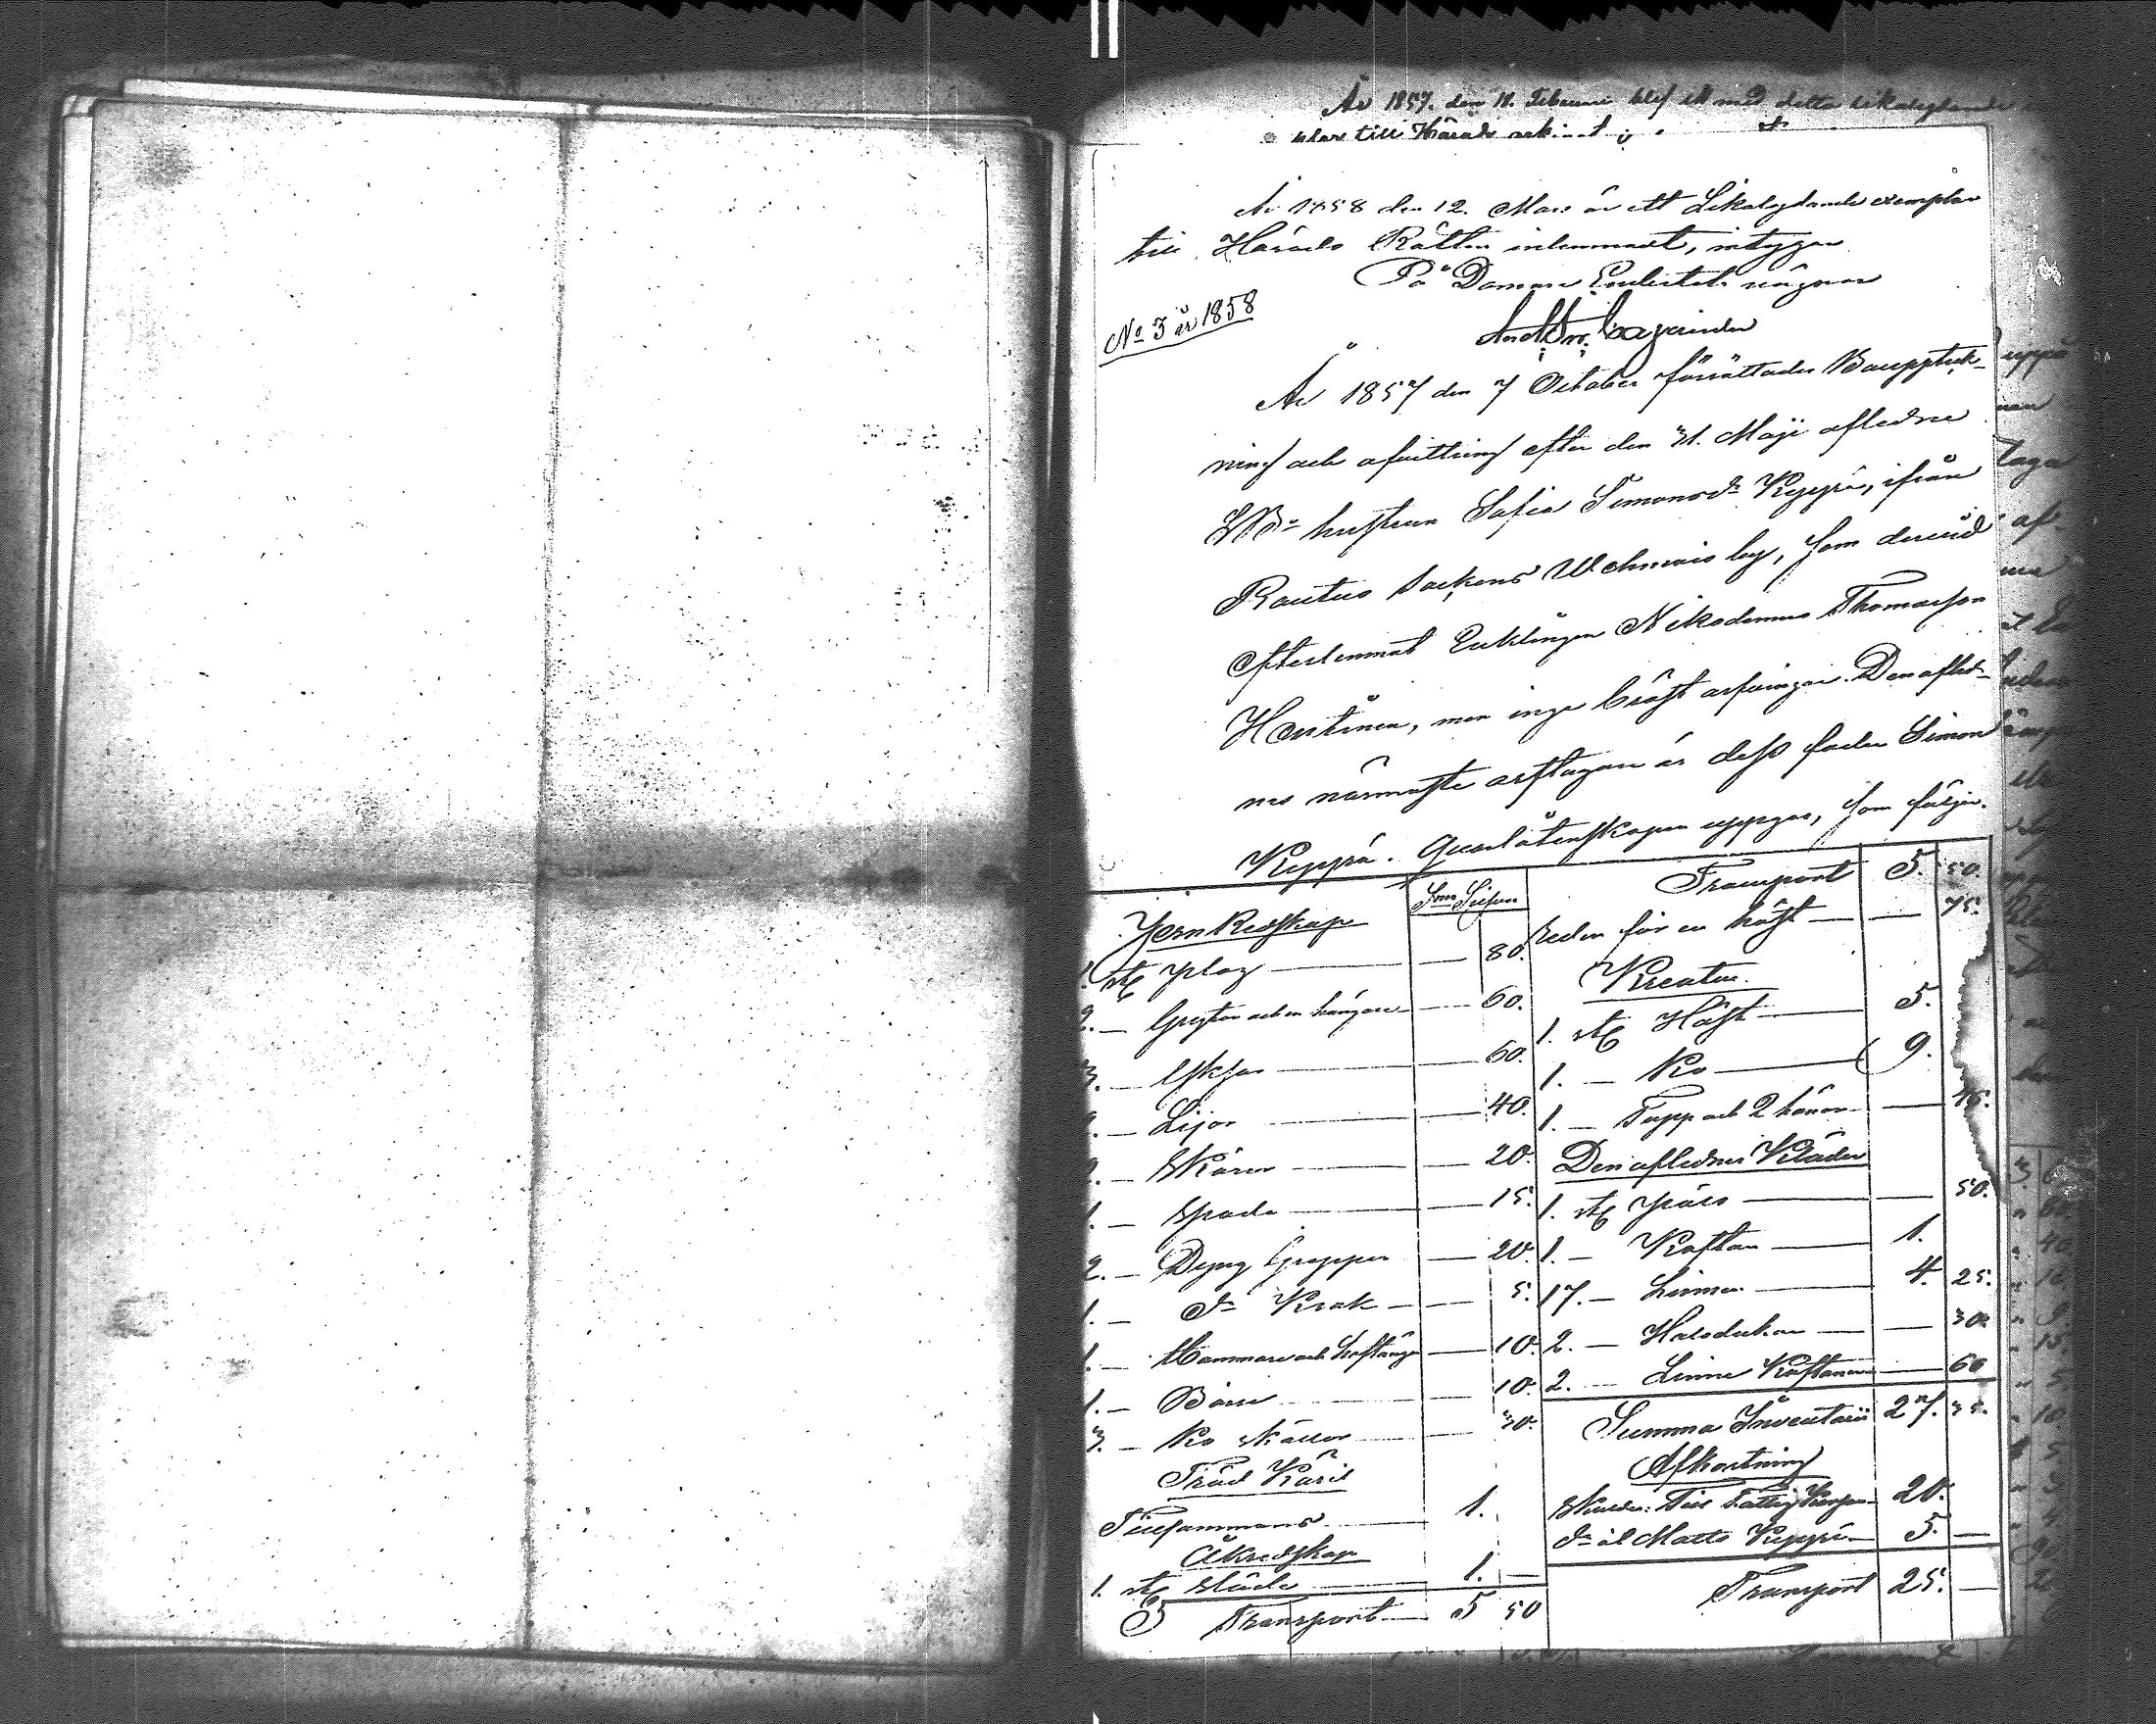 År 1857. den 18. Februari blef ett med detta likalydande
till Härads
År 1858 den 12. Mars är ett Likalydande exemplar
till Härads Rätten inlemnadt, intygar
På Domare Embetets vägnar
No 3 år 1858
År 1857 den 7 October förrättades Bouppteck-
ning och afvittring efter den 31. Maji aflidne
hustrun Sofia Simonsdr Kyyrö, ifrån
Rautus sockens by, som dervid
efterlemnat Enklingen Nikodemus Thomasson
Hentinen, men inga bröst arfvingar. Den aflid-
nes närmaste arftagare är dess fader Simon
Kyyrö. Qvarlåtenskapen uppgas, som följer.
Jern Redskap
Rub. Silfver
1. st. plog — 80.
2. — Grytor och en hängare — 60.
3. — Yxor — 60.
2. — Lijor — 40.
2. — Skäror — 20.
1. — Spade — 15.
2. — Dyng Greppar — 20.
1. — do Krok — 5.
1. — Hammare och hoftång — 10.
1. — Borr — 10.
3. — Ko skällor — 30.
Träd Käril
Tillsammans — 1.
Åkredskap
1. st. släde — 1. —
Transport — 5 50
Transport 5. 50.
Sedon för en häst — 75.
Kreatur.
1. st. Häst — 5.
1. — Ko — 9.
1. — Tupp och 2 hönor — 45.
Den aflidnes Kläder
1. st. päls — 50.
1. — Kaftan — 1.
17. — Linnen — 4. 25.
2. — Halsdukar — 30.
2. — Linne Kaftaner — 60
Summa Inventarii 27. 35.
Afkortning
Skulder: Till Fattig Kassan 20.
do åt Matts Kyyrö 5. —
Transport 25. —